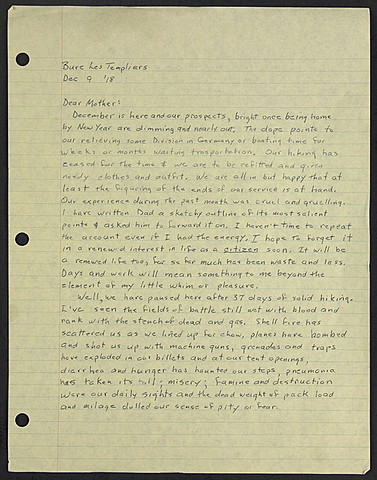 Bure Les Templiers
Dec 9 '18
Dear Mother:
December is here and our prospects, bright once being home
by New Year are dimming and nearly out. The dope points to
our relieving some Division in Germany or boating time for
weeks or months waiting trasportation. Our hiking has
ceased for the time & we are to be refitted and given
needy clothes and outfit. We are all in but happy that at
least the figuring of the ends of our service is at hand.
Our experience during the past month was cruel and gruelling.
I have written Dad a sketchy outline of its most salient
points & asked him to forward it on. I haven't time to repeat
the account even if I had the energy. I hope to forget it
in a renewed interest in life as a citizen soon. It will be
a renewed life too, for so far much has been waste and loss.
Days and work will mean something to me beyond the
element of my little whim or pleasure.
Well, we have paused here after 37 days of solid hiking.
I've seen the fields of battle still wet with blood and
rank with the stench of dead and gas. Shell fire has
scattered us as we lined up for chow, planes have bombed
and shot us up with machine guns, grenades and traps
have exploded in our billets and at our tent openings,
diarrhea and hunger has haunted our steps, pneumonia
has taken its toll; misery; famine and destruction
were our daily sights and the dead weight of pack load
and milage dulled our sense of pity or fear.